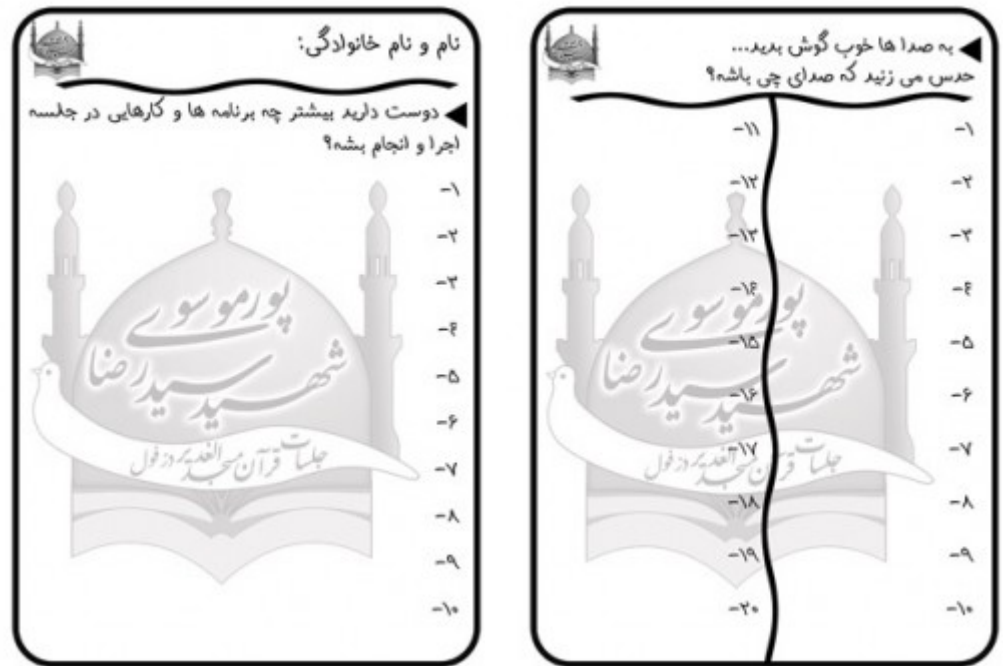 به صدا ها خوب گوش بدید...
حدس می زنید که صدای چی باشه؟
۱-
۲-
۳-
۴-
۵-
۶-
۷-
۸-
۹-
۱۰-
۱۱-
۱۲-
۱۳-
۱۴-
۱۵-
۱۶-
۱۷-
۱۸-
۱۹-
۲۰-
پورموسوی
شهید سید رضا
جلسات قرآن مسجد الغدیر دزفول
نام و نام خانوادگی:
دوست دارید بیشتر چه برنامه ها و کارهایی در جلسه
اجرا و انجام بشه؟
۱-
۲-
۳-
۴-
۵-
۶-
۷-
۸-
۹-
۱۰-
پورموسوی
شهید سید رضا
جلسات قرآن مسجد الغدیر دزفول